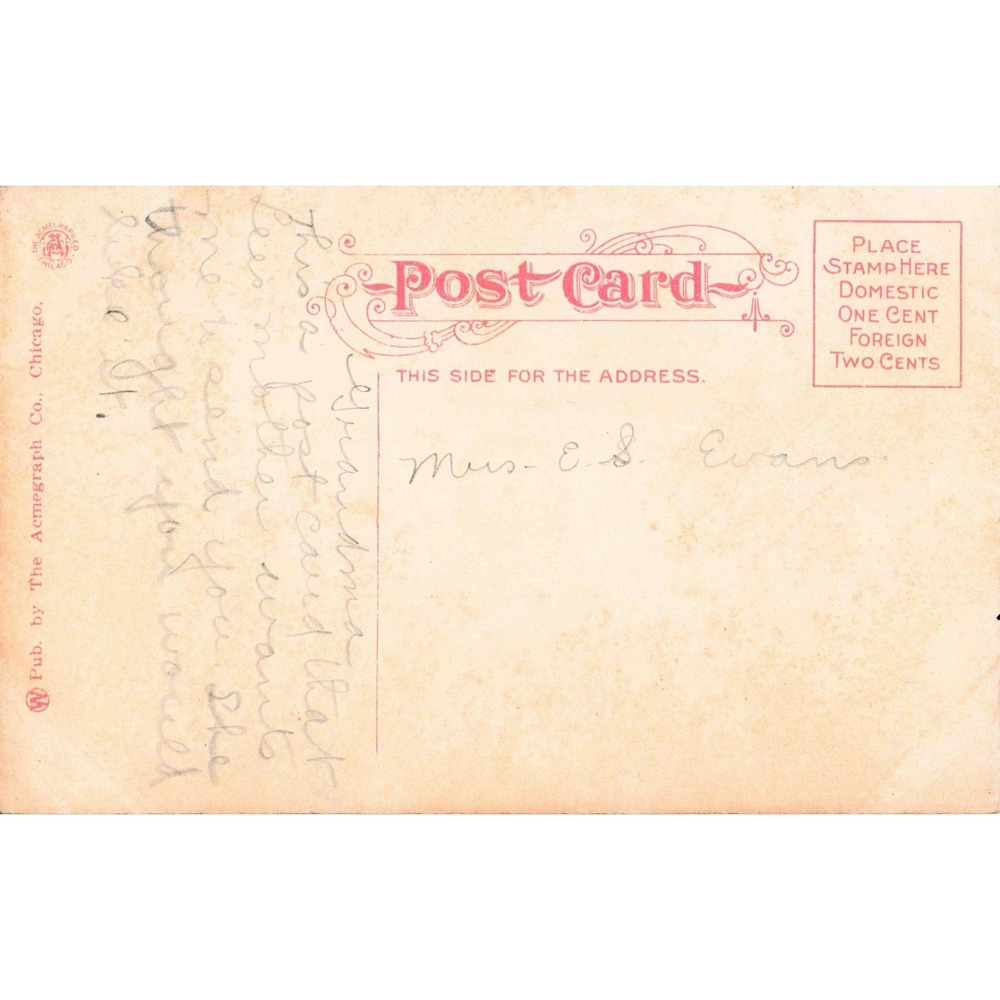 THE ACMEGRAPH CO.
CHICAGO
Pub. by The Acmegraph Co., Chicago.
Post Card
THIS SIDE FOR THE ADDRESS.
PLACE
STAMP HERE
DOMESTIC
ONE CENT
FOREIGN
TWO CENTS
Grandma
This a post card that
mother wants
me to send you. She
thought you would
like it.
Mrs. E. S. Evans